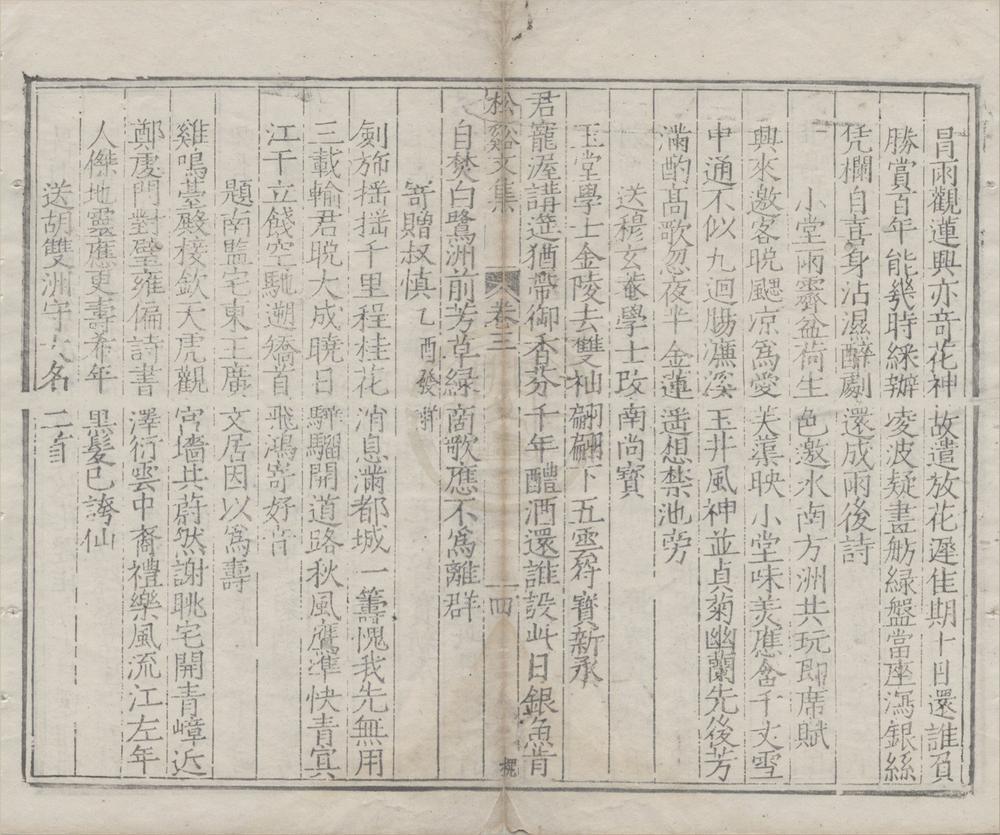 冒雨觀蓮興亦奇花神故遣放花遲佳期十日還誰負
勝賞百年能幾時綵辦凌波疑畫舫綠盤當座瀉銀絲
凭欄自喜身沾濕醉劇還成雨後詩
小堂雨霽盆荷生色邀水南方洲共玩即席賦
興來邀客晚颸凉為愛芙蕖映小堂味美應含千丈雪
中通不似九迴腸濂溪玉井風神並貞菊幽蘭先後芳
滿酌髙歌忽夜半金蓮遥想禁池旁
送穆玄菴學士改南尚寳
玉堂學士金陵去雙袖翩翩下五雲符寳新承
君寵渥講筵猶帶御香芬千年醴酒還誰設此日銀魚肯
松谿文集 卷三 一四
自焚白鷺洲前芳草綠商歌應不為離群
寄贈叔慎乙酉發謝
劍斾揺揺千里程桂花消息滿都城一籌愧我先無用
三載輸君晚大成曉日驊騮開道路秋風鷹準快青冥
江干立餞空馳遡矯首飛鴻寄好音
題南監宅東王廣文居因以為壽
雞鳴臺殿棱欽大虎觀宫墻共蔚然謝眺宅開青嶂近
鄭虔門對璧雍偏詩書澤衍雲中裔禮樂風流江左年
人傑地靈應更壽希年黑髪已誇仙
送胡雙洲守大名二首